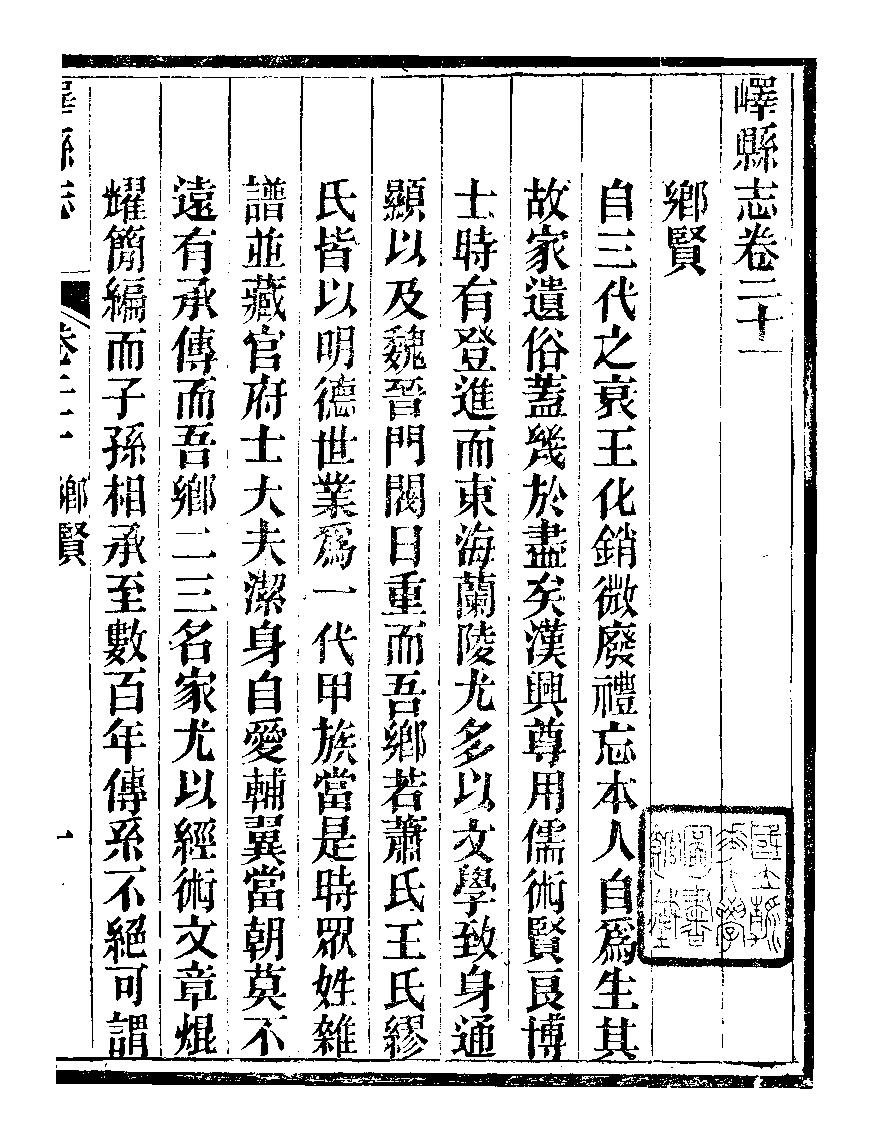 嶧縣志卷二十一
鄉賢
自三代之衰王化銷微廢禮忘本人自爲生其
故家遺俗蓋幾於盡矣漢興尊用儒術賢良博
士時有登進而東海蘭陵尤多以文學致身通
顯以及魏晉門閥日重而吾鄉若蕭氏王氏繆
氏皆以明德世業爲一代甲族當是時眾姓雜
譜並藏官府士大夫潔身自愛輔翼當朝莫不
遠有承傳而吾鄉二三名家尤以經術文章焜
耀簡編而子孫相承至數百年傳系不絕可謂
嶧縣志 卷二十一 鄉賢 一